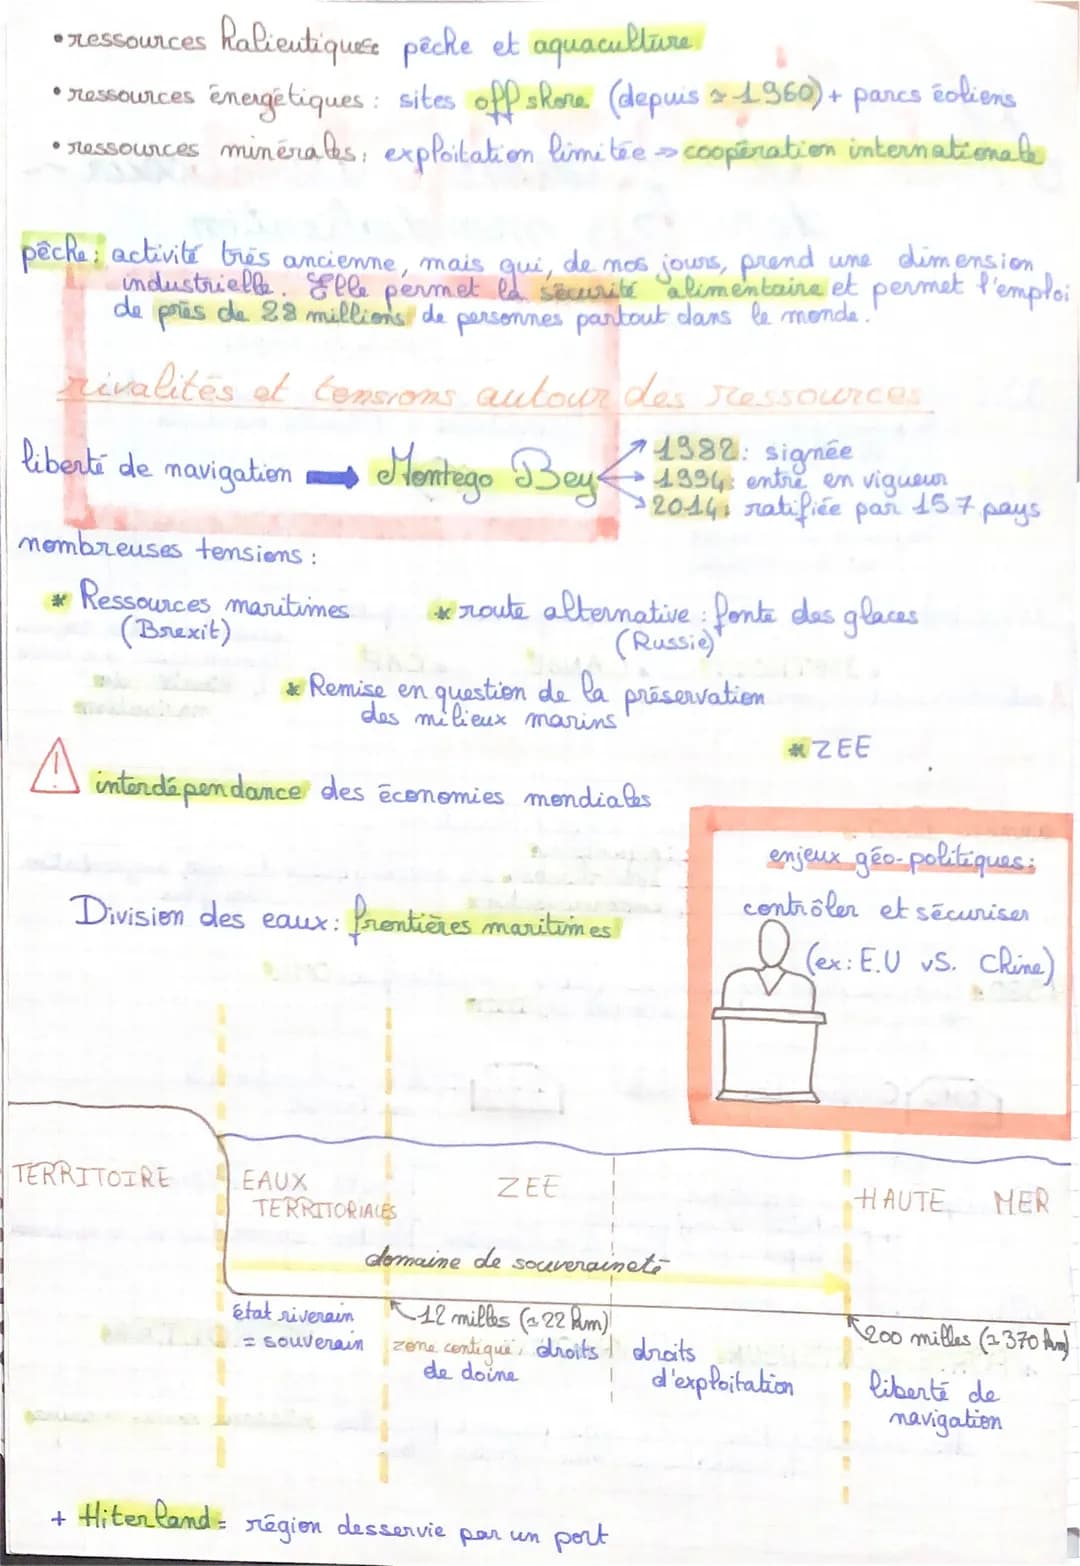 • ressources halieutiques: pêche et aquaculture
• ressources énergétiques : sites offshore (depuis ≃ 1960) + parcs éoliens
• ressources minérales: exploitation limitée => coopération internationale
pêche : activité très ancienne, mais qui, de nos jours, prend une dimension
industrielle. Elle permet la sécurité alimentaire et permet l'emploi
de près de 28 millions de personnes partout dans le monde.
rivalités et tensions autour des ressources
liberté de navigation → Montego Bey
1982: signée
1994: entre en vigueur
2014: ratifiée par 157 pays
nombreuses tensions :
* Ressources maritimes
(Brexit)
* route alternative : fonte des glaces
(Russie)
* Remise en question de la préservation
des milieux marins
* ZEE
! interdépendance des économies mondiales
enjeux géo-politiques:
contrôler et sécuriser
(ex: E.U vs. Chine)
Division des eaux: frontières maritimes
TERRITOIRE
EAUX
TERRITORIALES
ZEE
HAUTE MER
domaine de souveraineté
état riverain
= souverain
12 milles (≃ 22 km)
zone contiguë, droits
de doine
droits
d'exploitation
200 milles (≃ 370 km)
liberté de
navigation
+ Hiterland = région desservie par un port